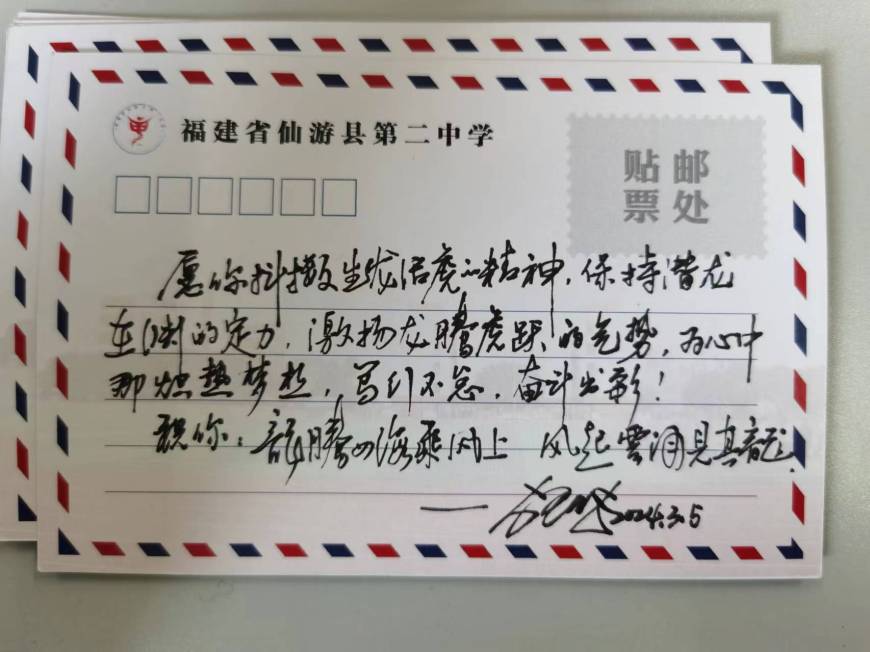 福建省仙游县第二中学
贴邮
票处
愿你抖擞生龙活虎的精神，保持潜龙
在渊的定力，激扬龙腾虎跃的气势，为心中
那炽热梦想，笃行不怠，奋斗出彩！
祝你：龍腾四海乘风上 风起雲涌见真龍
—— 2024.3.5